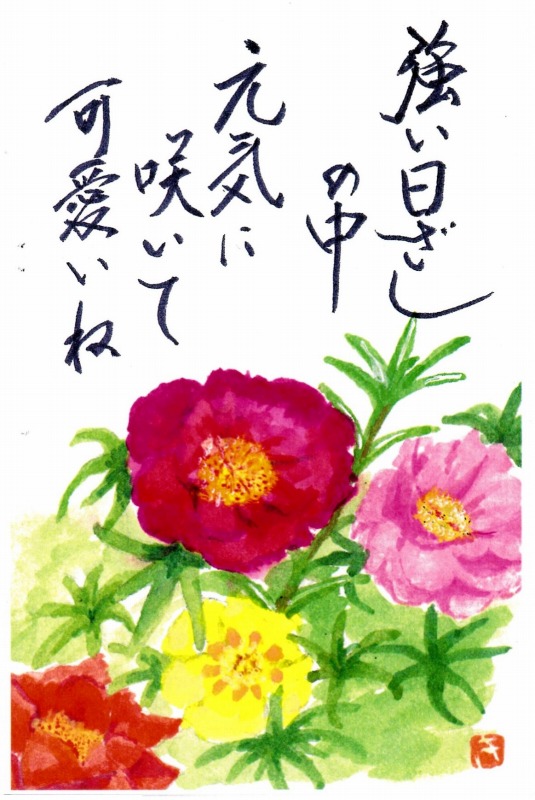 強い日ざし
の中
元気に
咲いて
可愛いね